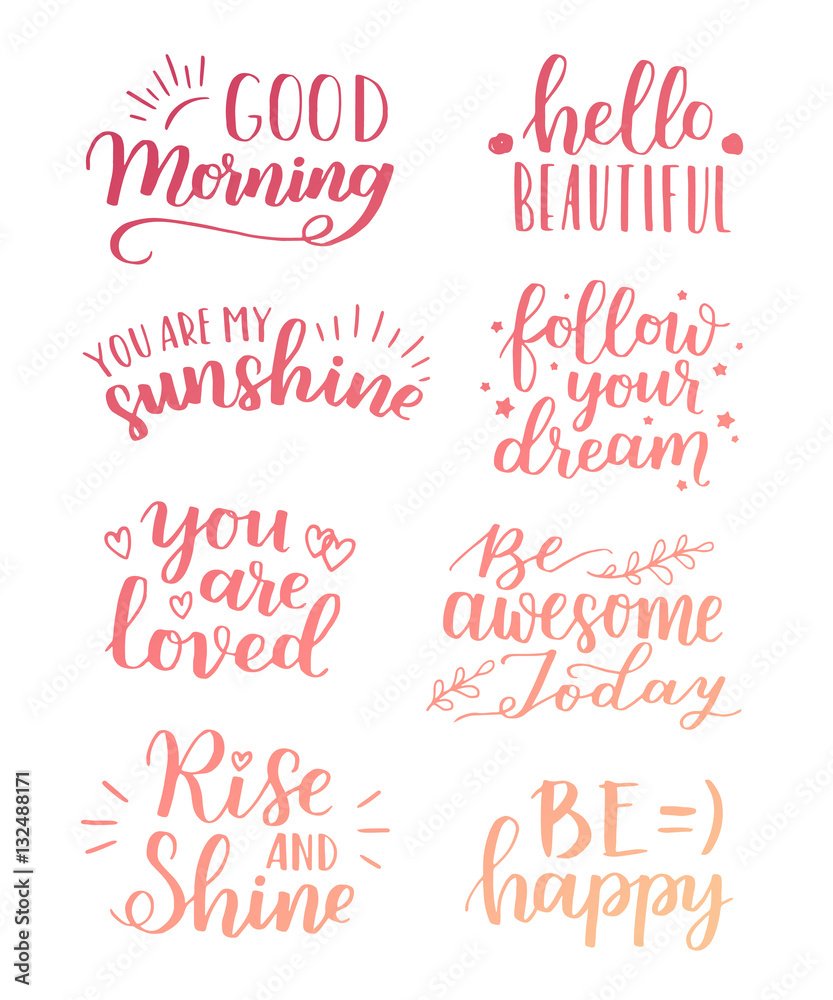 GOOD
Morning
hello
BEAUTIFUL
YOU ARE MY
sunshine
follow
your
dream
you
are
loved
Be
awesome
Today
Rise
AND
Shine
BE =)
happy
Adobe Stock | #132488171